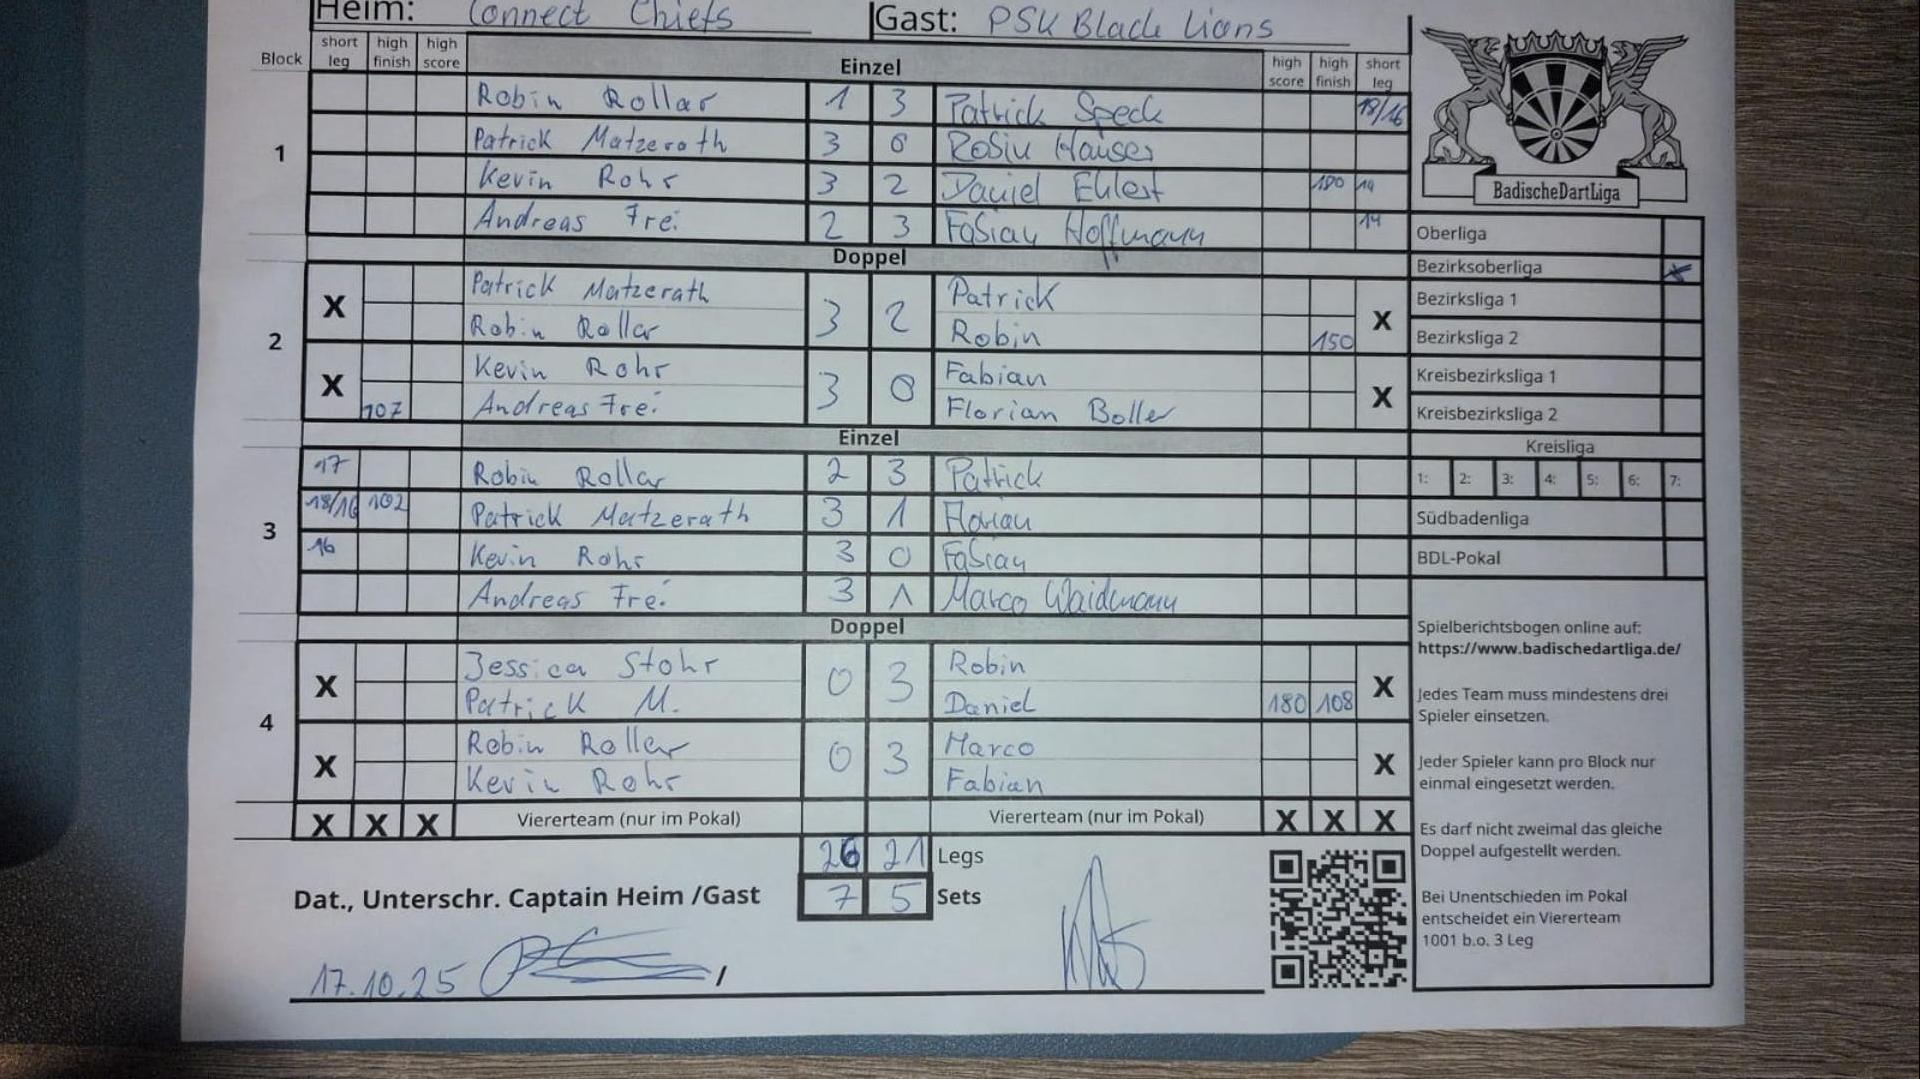 Heim: Connect Chiefs Gast: PSK Black Lions
Block short leg high finish high score Einzel high score high finish short leg
1
Robin Rollar 1 3 Patrick Speck 18/16
Patrick Matzerath 3 0 Robin Hauser
Kevin Rohr 3 2 Daniel Ehlert 180 19
Andreas Frei 2 3 Fabian Hoffmann 19
Doppel
2
X Patrick Matzerath 3 2 Patrick X
Robin Rollar Robin 150
X Kevin Rohr 3 0 Fabian X
107 Andreas Frei Florian Boller
Einzel
3
17 Robin Rollar 2 3 Patrick
18/16 102 Patrick Matzerath 3 1 Florian
16 Kevin Rohr 3 0 Fabian
Andreas Frei 3 1 Marco Waidmann
Doppel
4
X Jessica Stohr 0 3 Robin X
Patrick M. Daniel 180 108
X Robin Rollar 0 3 Marco X
Kevin Rohr Fabian
X X X Viererteam (nur im Pokal) Viererteam (nur im Pokal) X X X
26 21 Legs
Dat., Unterschr. Captain Heim /Gast 7 5 Sets
17.10.25 /
BadischeDartLiga
Oberliga
Bezirksoberliga X
Bezirksliga 1
Bezirksliga 2
Kreisbezirksliga 1
Kreisbezirksliga 2
Kreisliga
1: 2: 3: 4: 5: 6: 7:
Südbadenliga
BDL-Pokal
Spielberichtsbogen online auf:
https://www.badischedartliga.de/
Jedes Team muss mindestens drei
Spieler einsetzen.
Jeder Spieler kann pro Block nur
einmal eingesetzt werden.
Es darf nicht zweimal das gleiche
Doppel aufgestellt werden.
Bei Unentschieden im Pokal
entscheidet ein Viererteam
1001 b.o. 3 Leg